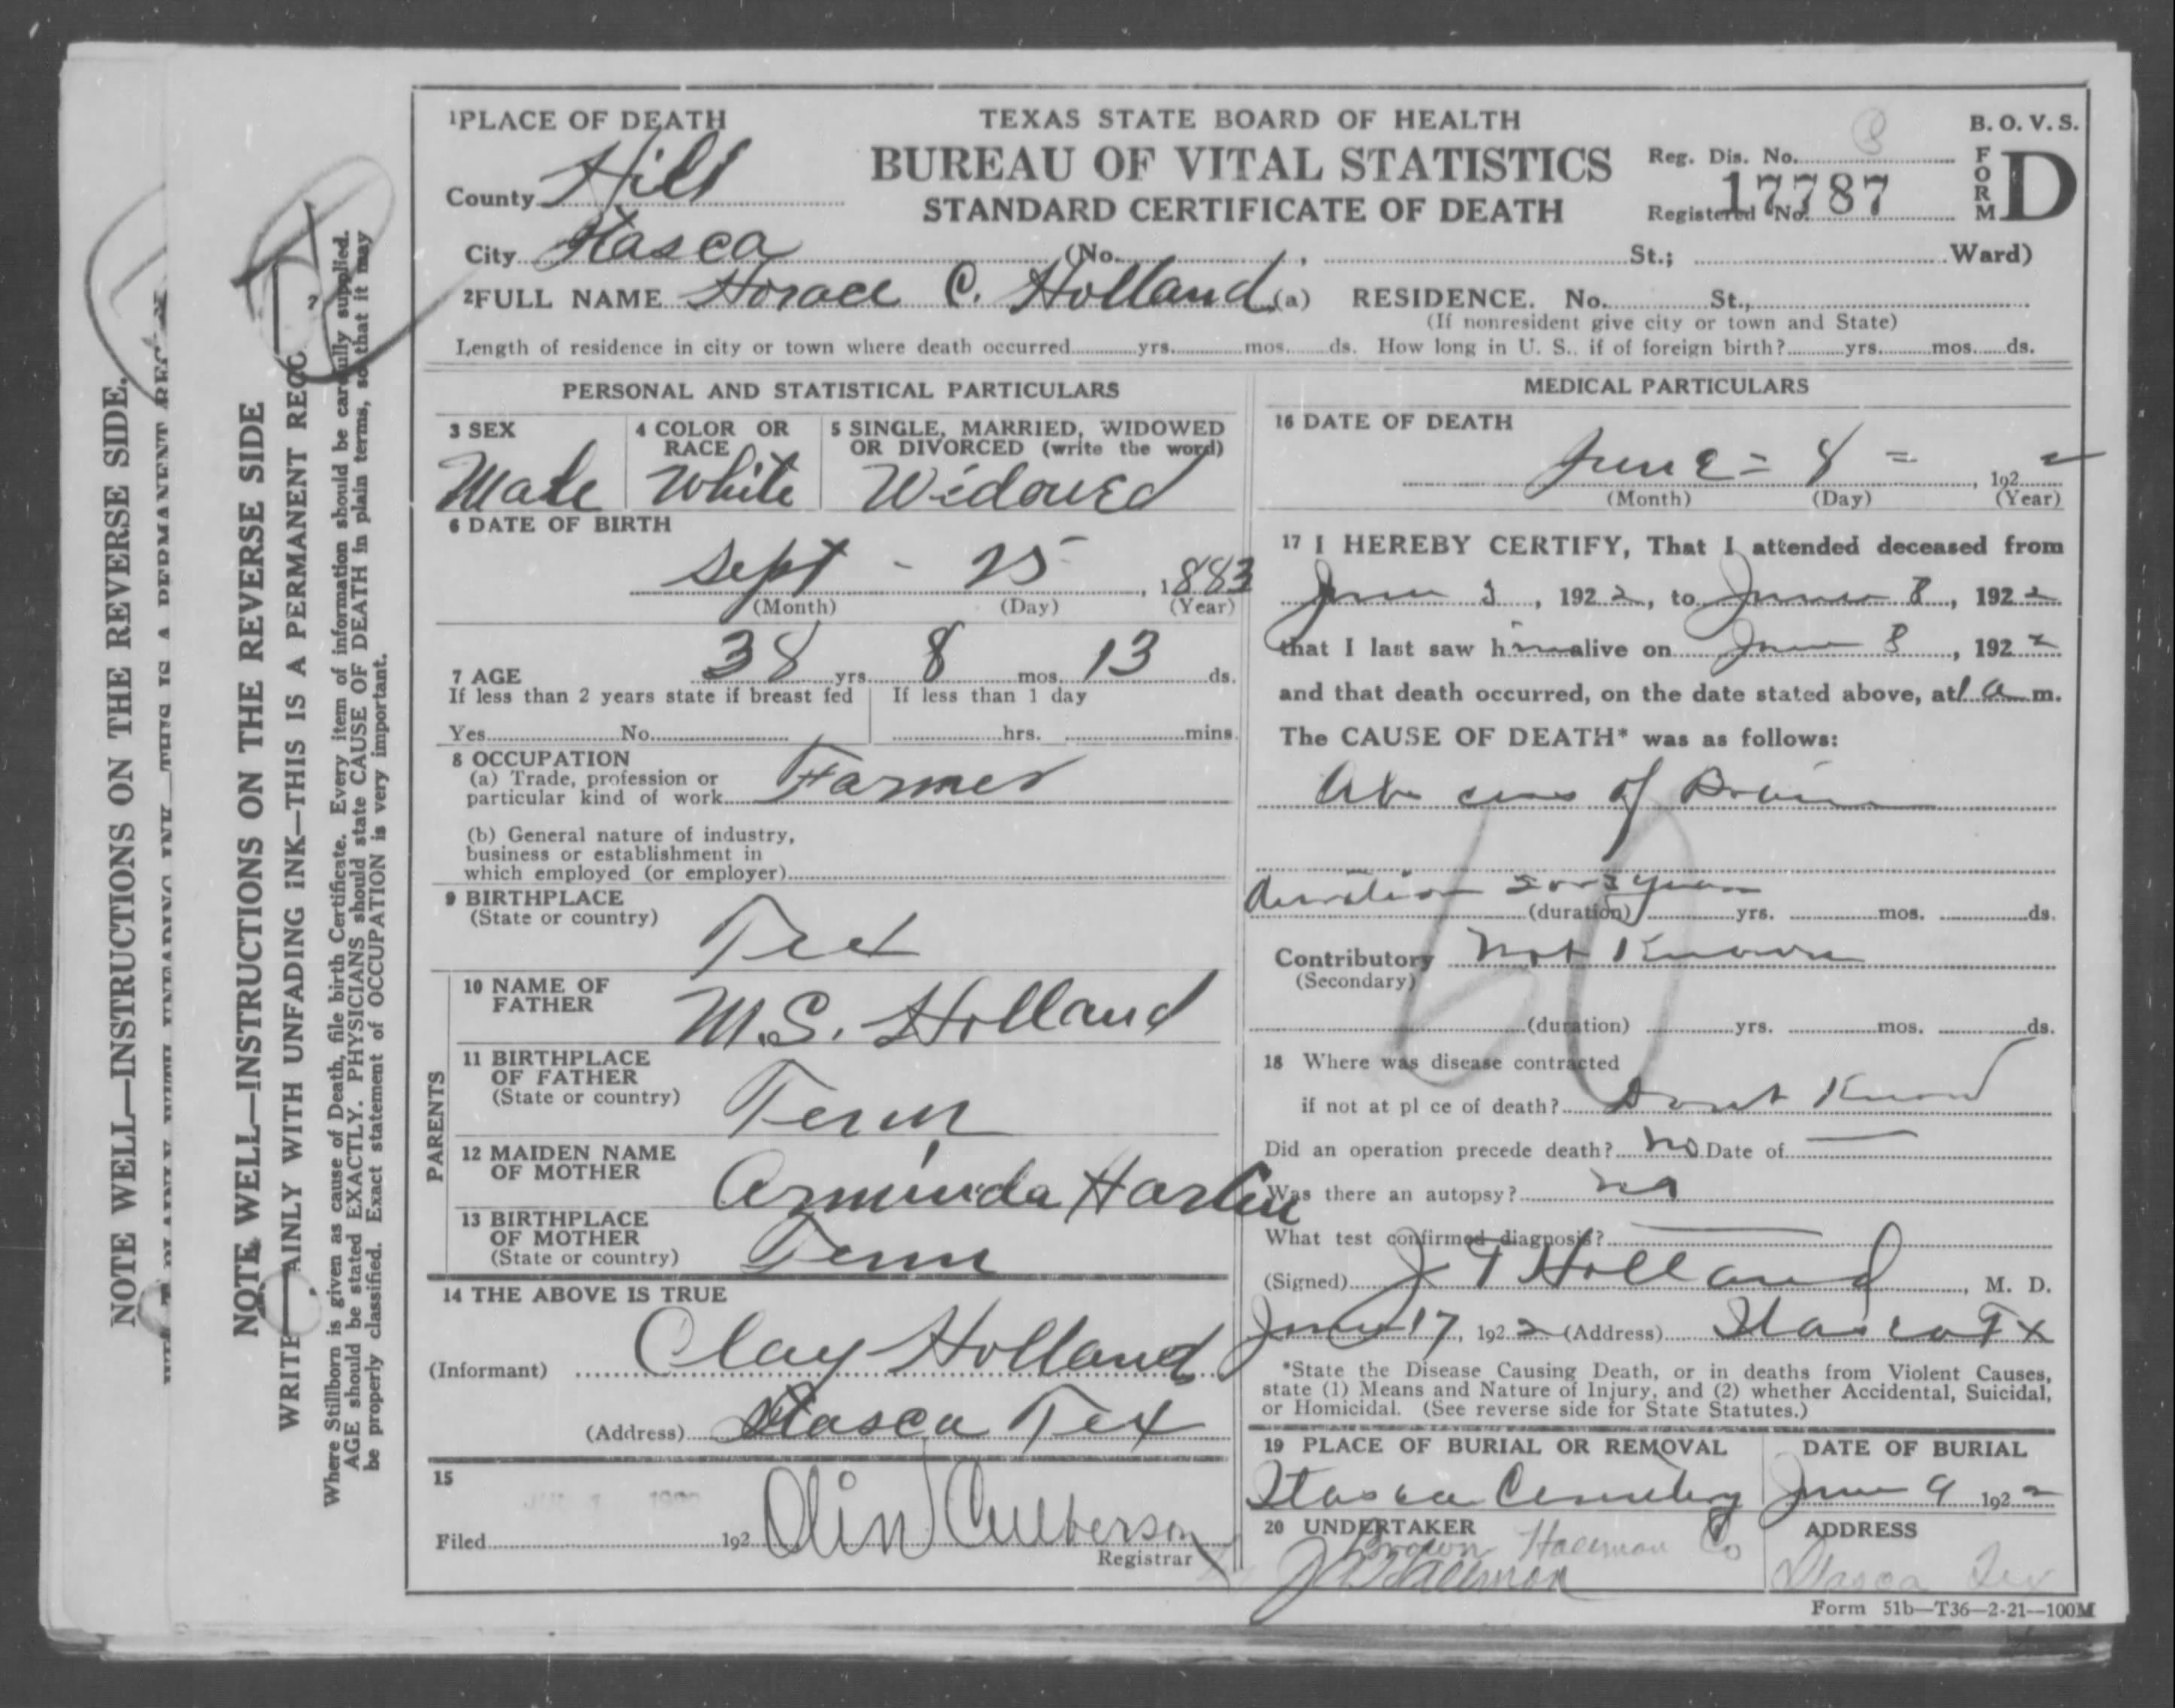 NOTE WELL—INSTRUCTIONS ON THE REVERSE SIDE.
NOTE WELL—INSTRUCTIONS ON THE REVERSE SIDE
WRITE AINLY WITH UNFADING INK—THIS IS A PERMANENT RECO
Where Stillborn is given as cause of Death, file birth Certificate. Every item of information should be carefully supplied.
AGE should be stated EXACTLY. PHYSICIANS should state CAUSE OF DEATH in plain terms, so that it may
be properly classified. Exact statement of OCCUPATION is very important.
1PLACE OF DEATH
TEXAS STATE BOARD OF HEALTH
B. O. V. S.
BUREAU OF VITAL STATISTICS
STANDARD CERTIFICATE OF DEATH
Reg. Dis. No.
Registered No. 17787
FORM D
County Hill
City Itasca (No. , St.; Ward)
2FULL NAME Horace C. Holland (a) RESIDENCE. No. St.,
(If nonresident give city or town and State)
Length of residence in city or town where death occurred yrs. mos. ds. How long in U. S., if of foreign birth? yrs. mos. ds.
PERSONAL AND STATISTICAL PARTICULARS
3 SEX
4 COLOR OR RACE
5 SINGLE, MARRIED, WIDOWED
OR DIVORCED (write the word)
Male White Widowed
6 DATE OF BIRTH
Sept - 25 , 1883
(Month) (Day) (Year)
7 AGE 38 yrs. 8 mos. 13 ds.
If less than 2 years state if breast fed If less than 1 day
Yes No hrs. mins.
8 OCCUPATION
(a) Trade, profession or
particular kind of work Farmer
(b) General nature of industry,
business or establishment in
which employed (or employer)
9 BIRTHPLACE
(State or country) Tex
PARENTS
10 NAME OF
FATHER M.S. Holland
11 BIRTHPLACE
OF FATHER
(State or country) Tenn
12 MAIDEN NAME
OF MOTHER Arminda Harlin
13 BIRTHPLACE
OF MOTHER
(State or country) Tenn
14 THE ABOVE IS TRUE
(Informant) Clay Holland
(Address) Itasca Tex
15
Filed 192 Olin Culberson
Registrar
MEDICAL PARTICULARS
16 DATE OF DEATH
June = 8 = , 1922
(Month) (Day) (Year)
17 I HEREBY CERTIFY, That I attended deceased from
June 3, 1922, to June 8, 1922
that I last saw him alive on June 8, 1922
and that death occurred, on the date stated above, at 1 a m.
The CAUSE OF DEATH* was as follows:
Abscess of Brain
60
duration 2 or 3 years
(duration) yrs. mos. ds.
Contributory Not Known
(Secondary)
(duration) yrs. mos. ds.
18 Where was disease contracted
if not at pl ce of death? Dont Know
Did an operation precede death? no Date of
Was there an autopsy? no
What test confirmed diagnosis?
(Signed) J T Holland, M. D.
June 17, 1922 (Address) Itasca Tx
*State the Disease Causing Death, or in deaths from Violent Causes,
state (1) Means and Nature of Injury, and (2) whether Accidental, Suicidal,
or Homicidal. (See reverse side for State Statutes.)
19 PLACE OF BURIAL OR REMOVAL
DATE OF BURIAL
Itasca Cemetery June 9 1922
20 UNDERTAKER
ADDRESS
Brown Co
Itasca Tex
Form 51b—T36—2-21—100M